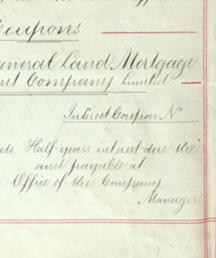 Coupons
General Land Mortgage
Company Limited
Interest Coupon No
Half years interest due the
and payable at
Office of the Company
Manager